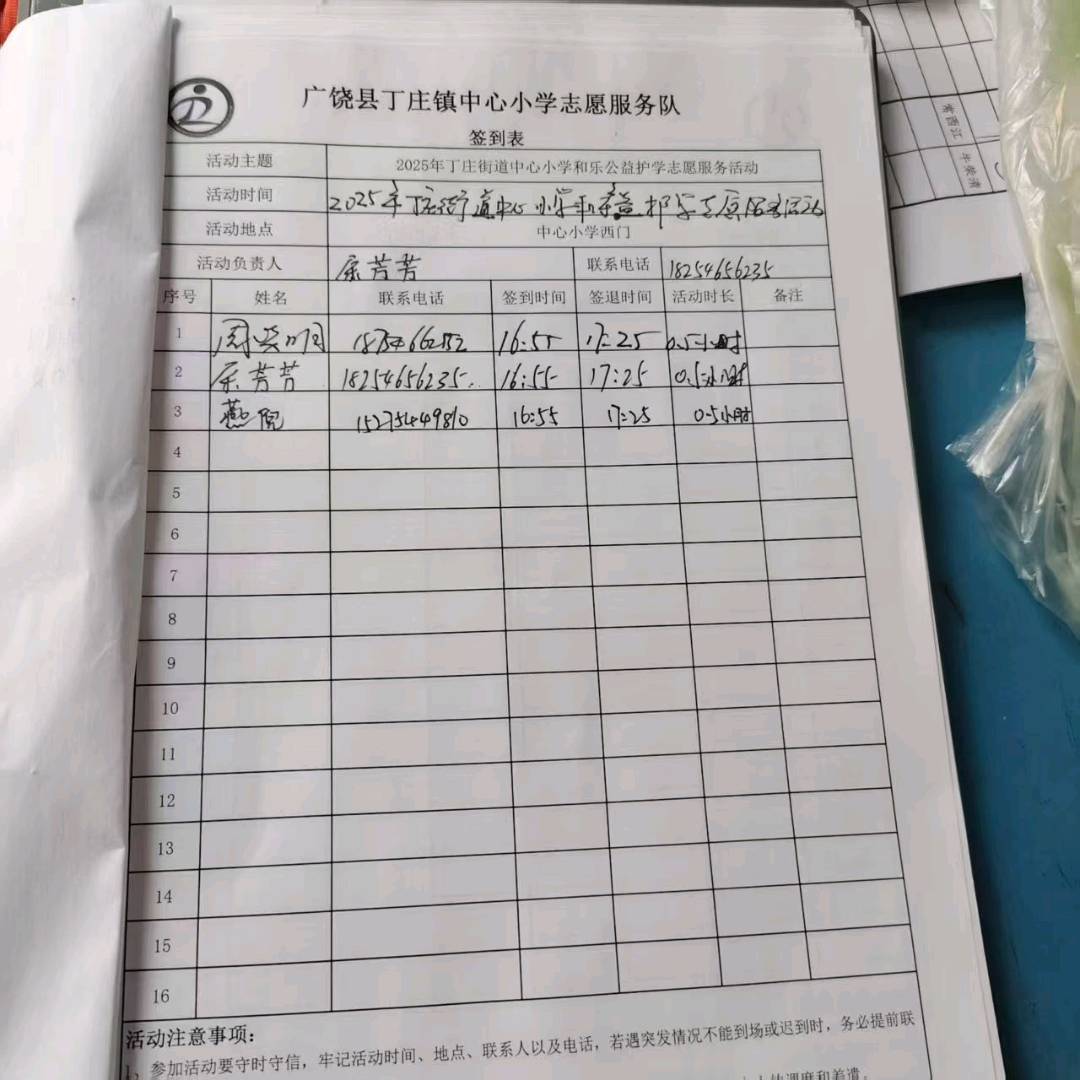 广饶县丁庄镇中心小学志愿服务队
签到表
活动主题 2025年丁庄街道中心小学和乐公益护学志愿服务活动
活动时间 2025年丁庄街道中心小学和乐公益护学志愿服务活动
活动地点 中心小学西门
活动负责人 芳芳 联系电话 18254656235
序号 姓名 联系电话 签到时间 签退时间 活动时长 备注
1 周 明 16:55 17:25 0.5小时
2 芳芳 18254656235 16:55 17:25 0.5小时
3 燕 15275449810 16:55 17:25 0.5小时
4
5
6
7
8
9
10
11
12
13
14
15
16
活动注意事项:
1、参加活动要守时守信，牢记活动时间、地点、联系人以及电话，若遇突发情况不能到场或迟到时，务必提前联
常西江 牛荣清